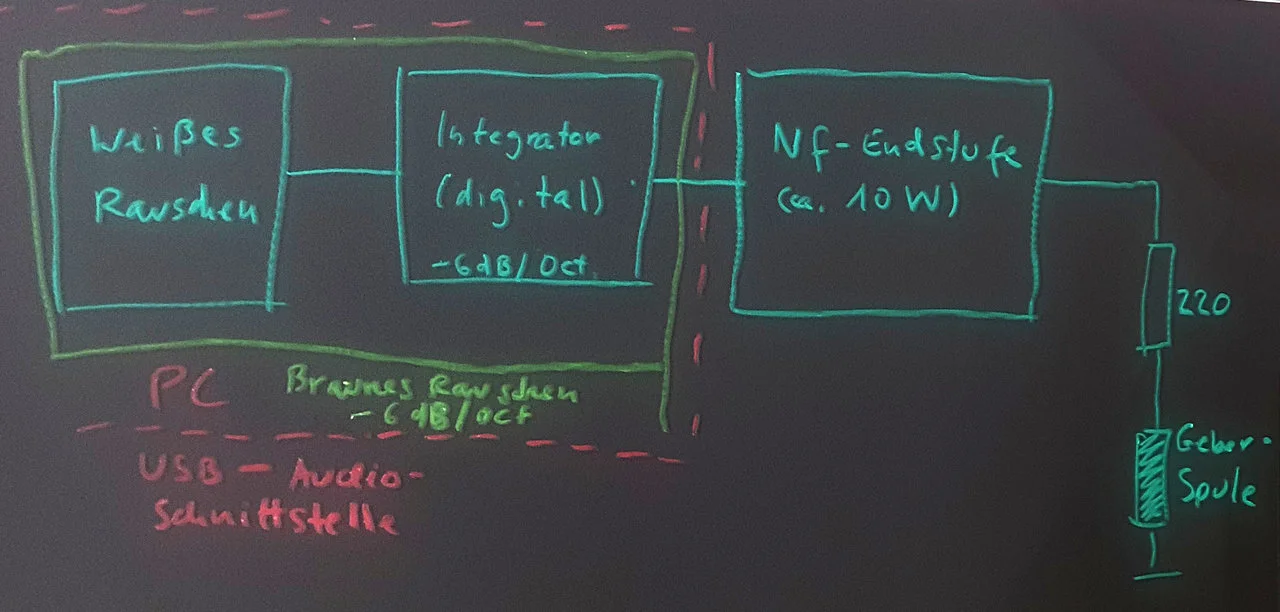 Weißes
Rauschen
Integrator
(digital)
-6dB/Oct.
Nf-Endstufe
(ca. 10 W)
220
Geber-
Spule
PC
Braunes Rauschen
-6dB/Oct
USB - Audio-
Schnittstelle